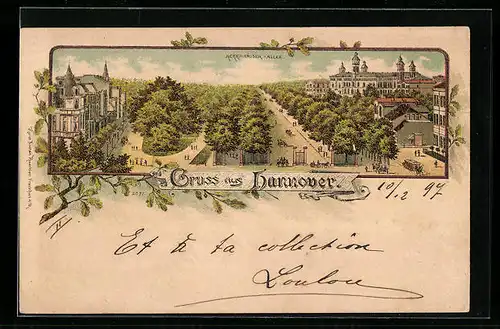 HERRENHÄUSER ALLEE
Gruss aus Hannover.
10/12 97
Et à ta collection
Loulou